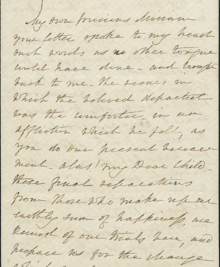 My own precious Minnow
your letter spoke to my heart
such words as no other tongue
could have done - and brought
back to me the scenes in
which the beloved departed
was the comforter in our
affliction which he felt, as
you do our present bereave
ment. alas! my Dear Child
these final separations
from those who make up our
earthly sum of happiness, are
of our trials here, and
prepare us for the change